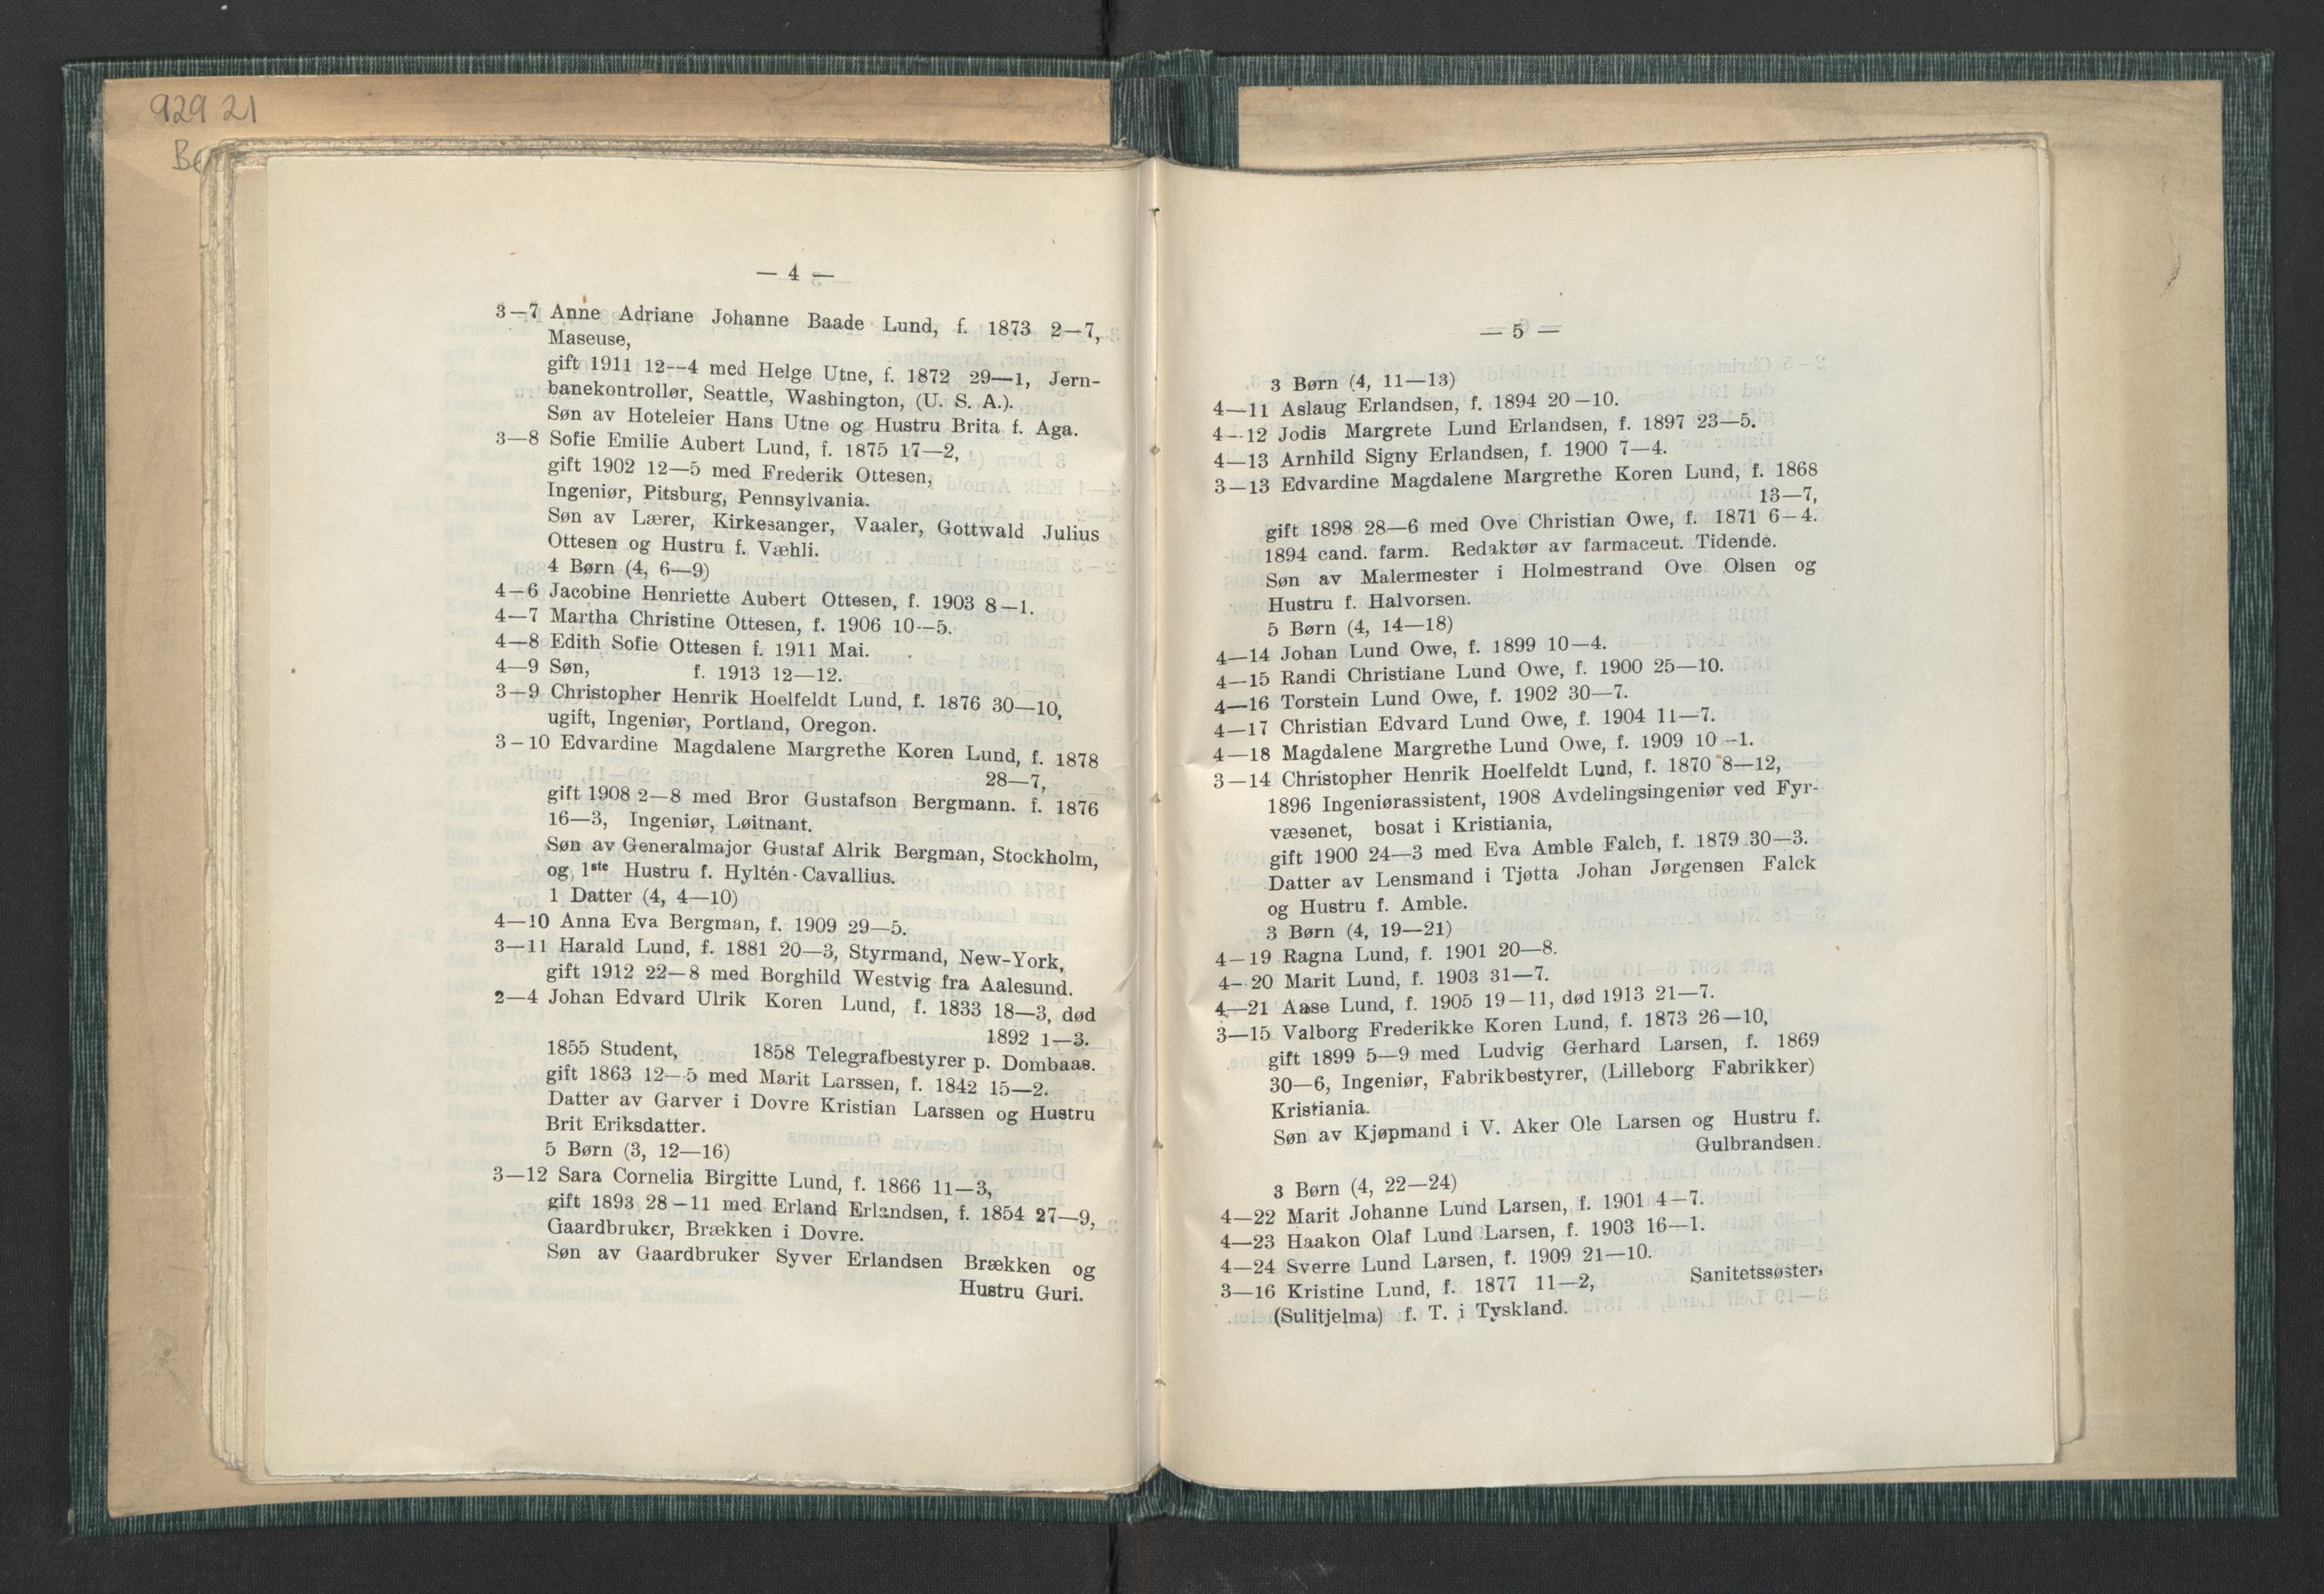 929 21
— 4 —
3—7 Anne Adriane Johanne Baade Lund, f. 1873 2—7,
Maseuse,
gift 1911 12--4 med Helge Utne, f. 1872 29—1, Jern-
banekontrollør, Seattle, Washington, (U. S. A.).
Søn av Hoteleier Hans Utne og Hustru Brita f. Aga.
3—8 Sofie Emilie Aubert Lund, f. 1875 17—2,
gift 1902 12—5 med Frederik Ottesen,
Ingeniør, Pitsburg, Pennsylvania.
Søn av Lærer, Kirkesanger, Vaaler, Gottwald Julius
Ottesen og Hustru f. Væhli.
4 Børn (4, 6—9)
4—6 Jacobine Henriette Aubert Ottesen, f. 1903 8—1.
4—7 Martha Christine Ottesen, f. 1906 10—5.
4—8 Edith Sofie Ottesen f. 1911 Mai.
4—9 Søn, f. 1913 12—12.
3—9 Christopher Henrik Hoelfeldt Lund, f. 1876 30—10,
ugift, Ingeniør, Portland, Oregon.
3—10 Edvardine Magdalene Margrethe Koren Lund, f. 1878
28—7,
gift 1908 2—8 med Bror Gustafson Bergmann. f. 1876
16—3, Ingeniør, Løitnant.
Søn av Generalmajor Gustaf Alrik Bergman, Stockholm,
og 1ste Hustru f. Hyltén-Cavallius.
1 Datter (4, 4—10)
4—10 Anna Eva Bergman, f. 1909 29—5.
3—11 Harald Lund, f. 1881 20—3, Styrmand, New-York,
gift 1912 22—8 med Borghild Westvig fra Aalesund.
2—4 Johan Edvard Ulrik Koren Lund, f. 1833 18—3, død
1892 1—3.
1855 Student, 1858 Telegrafbestyrer p. Dombaas.
gift 1863 12—5 med Marit Larssen, f. 1842 15—2.
Datter av Garver i Dovre Kristian Larssen og Hustru
Brit Eriksdatter.
5 Børn (3, 12—16)
3—12 Sara Cornelia Birgitte Lund, f. 1866 11—3,
gift 1893 28—11 med Erland Erlandsen, f. 1854 27—9,
Gaardbruker, Brækken i Dovre.
Søn av Gaardbruker Syver Erlandsen Brækken og
Hustru Guri.
— 5 —
3 Børn (4, 11—13)
4—11 Aslaug Erlandsen, f. 1894 20—10.
4—12 Jodis Margrete Lund Erlandsen, f. 1897 23—5.
4—13 Arnhild Signy Erlandsen, f. 1900 7—4.
3—13 Edvardine Magdalene Margrethe Koren Lund, f. 1868
13—7,
gift 1898 28—6 med Ove Christian Owe, f. 1871 6—4.
1894 cand. farm. Redaktør av farmaceut. Tidende.
Søn av Malermester i Holmestrand Ove Olsen og
Hustru f. Halvorsen.
5 Børn (4, 14—18)
4—14 Johan Lund Owe, f. 1899 10—4.
4—15 Randi Christiane Lund Owe, f. 1900 25—10.
4—16 Torstein Lund Owe, f. 1902 30—7.
4—17 Christian Edvard Lund Owe, f. 1904 11—7.
4—18 Magdalene Margrethe Lund Owe, f. 1909 10—1.
3—14 Christopher Henrik Hoelfeldt Lund, f. 1870 8—12,
1896 Ingeniørassistent, 1908 Avdelingsingeniør ved Fyr-
væsenet, bosat i Kristiania,
gift 1900 24—3 med Eva Amble Falch, f. 1879 30—3.
Datter av Lensmand i Tjøtta Johan Jørgensen Falck
og Hustru f. Amble.
3 Børn (4, 19—21)
4—19 Ragna Lund, f. 1901 20—8.
4—20 Marit Lund, f. 1903 31—7.
4—21 Aase Lund, f. 1905 19—11, død 1913 21—7.
3—15 Valborg Frederikke Koren Lund, f. 1873 26—10,
gift 1899 5—9 med Ludvig Gerhard Larsen, f. 1869
30—6, Ingeniør, Fabrikbestyrer, (Lilleborg Fabrikker)
Kristiania.
Søn av Kjøpmand i V. Aker Ole Larsen og Hustru f.
Gulbrandsen.
3 Børn (4, 22—24)
4—22 Marit Johanne Lund Larsen, f. 1901 4—7.
4—23 Haakon Olaf Lund Larsen, f. 1903 16—1.
4—24 Sverre Lund Larsen, f. 1909 21—10.
3—16 Kristine Lund, f. 1877 11—2, Sanitetssøster,
(Sulitjelma) f. T. i Tyskland.